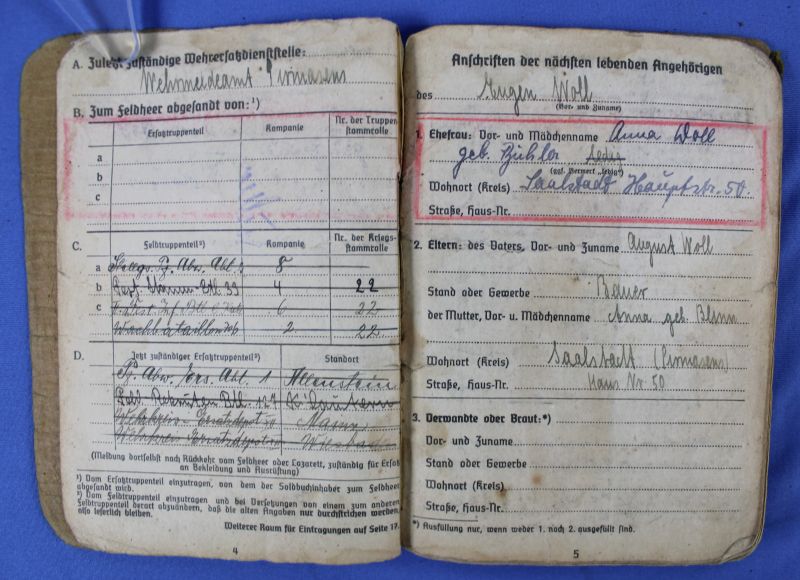 A. Zuletzt zuständige Wehrersatzdienststelle:
Wehrmeldeamt Pirmasens
B. Zum Feldheer abgesandt von:¹)
Ersatztruppenteil
Kompanie
Nr. der Truppenstammrolle
a
b
c
C.
Feldtruppenteil²)
Kompanie
Nr. der Kriegsstammrolle
a Abt. 8
b 4 22
c 6 22
2. 22
D.
Jetzt zuständiger Ersatztruppenteil²)
Standort
Abw. Ers. Abt. 1 Allenstein
Mainz
(Meldung dortselbst nach Rückkehr vom Feldheer oder Lazarett, zuständig für Ersatz
an Bekleidung und Ausrüstung)
¹) Vom Ersatztruppenteil einzutragen, von dem der Soldbuchinhaber zum Feldheer
abgesandt wird.
²) Vom Feldtruppenteil einzutragen und bei Versetzungen von einem zum anderen
Feldtruppenteil derart abzuändern, daß die alten Angaben nur durchstrichen werden,
also leserlich bleiben.
Weiterer Raum für Eintragungen auf Seite 17.
4
Anschriften der nächsten lebenden Angehörigen
des Eugen Woll
(Vor- und Zuname)
1. Ehefrau: Vor- und Mädchenname Anna Woll
geb. Bühler ledig
(ggf. Vermerk „ledig")
Wohnort (Kreis) Saalstadt Hauptstr. 50.
Straße, Haus-Nr.
2. Eltern: des Vaters, Vor- und Zuname August Woll
Stand oder Gewerbe Bauer
der Mutter, Vor- u. Mädchenname Anna geb.
Wohnort (Kreis) Saalstadt (Pirmasens)
Straße, Haus-Nr. Haus Nr. 50
3. Verwandte oder Braut:*)
Vor- und Zuname
Stand oder Gewerbe
Wohnort (Kreis)
Straße, Haus-Nr.
*) Ausfüllung nur, wenn weder 1. noch 2. ausgefüllt sind.
5